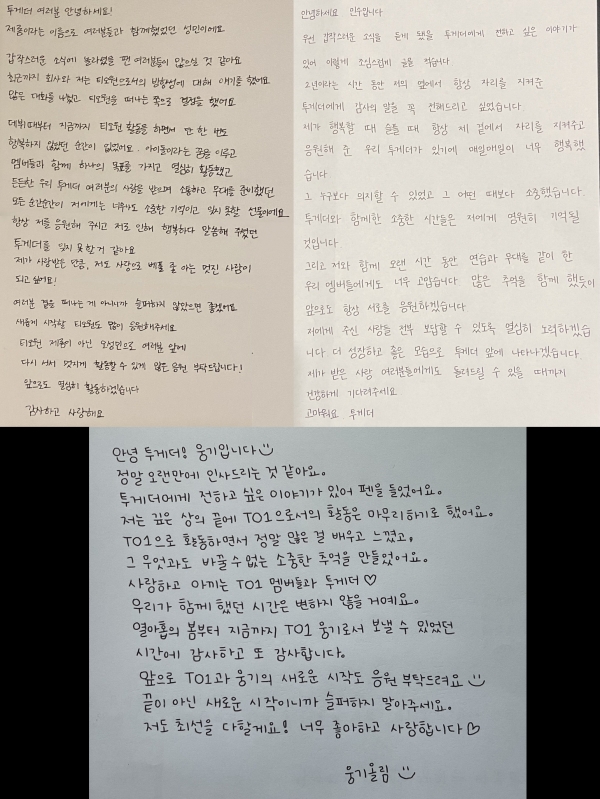 투게더 여러분 안녕하세요!
제롬이라는 이름으로 여러분들과 함께했었던 성민이에요
갑작스러운 소식에 놀라셨을 팬 여러분들이 많으실 것 같아요
최근까지 회사와 저는 티오원으로서의 방향성에 대해 얘기를 했어요
많은 대화를 나눴고, 티오원을 떠나는 쪽으로 결정을 했어요
데뷔때부터 지금까지 티오원 활동을 하면서 단 한 번도
행복하지 않았던 순간이 없었어요. 아이돌이라는 꿈을 이루고
멤버들과 함께 하나의 목표를 가지고 열심히 활동했고
든든한 우리 투게더 여러분의 사랑을 받으며 소통하고 무대를 준비했던
모든 순간순간이 저에게는 너무나도 소중한 기억이고 잊지 못할 선물이에요
항상 저를 응원해 주시고 저로 인해 행복하다 말씀해 주셨던
투게더를 잊지 못할 거 같아요
제가 사랑받은 만큼, 저도 사랑으로 베풀 줄 아는 멋진 사람이
되고 싶어요!
여러분 곁을 떠나는 게 아니니까 슬퍼하지 않았으면 좋겠어요
새롭게 시작할 티오원도 많이 응원해주세요
티오원 제롬이 아닌 오성민으로 여러분 앞에
다시 서서 멋지게 활동할 수 있게 많은 응원 부탁드립니다!
앞으로도 열심히 활동하겠습니다
감사하고 사랑해요
안녕하세요 민수입니다
우선 갑작스러운 소식을 듣게 됐을 투게더에게 전하고 싶은 이야기가
있어 이렇게 조심스럽게 글을 적습니다
2년이라는 시간 동안 저의 옆에서 항상 자리를 지켜준
투게더에게 감사의 말을 꼭 전해드리고 싶었습니다.
제가 행복할 때 슬플 때 항상 제 곁에서 자리를 지켜주고
응원해 준 우리 투게더가 있기에 매일매일이 너무 행복했
습니다
그 누구보다 의지할 수 있었고 그 어떤 때보다 소중했습니다.
투게더와 함께한 소중한 시간들은 저에게 영원히 기억될
것입니다
그리고 저와 함께 오랜 시간 동안 연습과 무대를 같이 한
우리 멤버들에게도 너무 고맙습니다 많은 추억을 함께 했듯이
앞으로도 항상 서로를 응원하겠습니다
저에게 주신 사랑들 전부 보답할 수 있도록 열심히 노력하겠습
니다 더 성장하고 좋은 모습으로 투게더 앞에 나타나겠습니다.
제가 받은 사랑 여러분들에게도 돌려드릴 수 있을 때까지
건강하게 기다려주세요
고마워요 투게더
안녕 투게더! 웅기입니다
정말 오랜만에 인사드리는 것 같아요.
투게더에게 전하고 싶은 이야기가 있어 펜을 들었어요.
저는 깊은 상의 끝에 TO1으로서의 활동은 마무리하기로 했어요.
TO1으로 활동하면서 정말 많은 걸 배우고 느꼈고,
그 무엇과도 바꿀 수 없는 소중한 추억을 만들었어요.
사랑하고 아끼는 TO1 멤버들과 투게더♡
우리가 함께 했던 시간은 변하지 않을 거예요.
열아홉의 봄부터 지금까지 TO1 웅기로서 보낼 수 있었던
시간에 감사하고 또 감사합니다.
앞으로 TO1과 웅기의 새로운 시작도 응원 부탁드려요
끝이 아닌 새로운 시작이니까 슬퍼하지 말아주세요.
저도 최선을 다할게요! 너무 좋아하고 사랑합니다♡
웅기올림